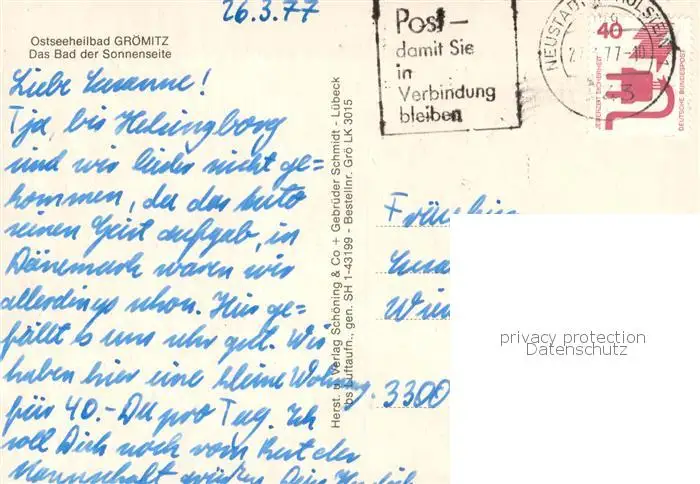 26.3.77
Ostseeheilbad GRÖMITZ
Das Bad der Sonnenseite
Liebe Susanne!
Tja, bis Helsingborg
sind wir leider nicht ge=
kommen, da das Auto
seinen Geist aufgab, in
Dänemark waren wir
allerdings schon. Hier ge=
fällt es uns sehr gut. Wir
haben hier eine kleine Wohng.
für 40.-DM pro Tag. Ich
soll Dich noch vom Rest der
Mannschaft grüßen. Dein
Herst. u. Verlag Schöning & Co + Gebrüder Schmidt - Lübeck
Luftaufn., gen. SH 1-43199 - Bestellnr. Grö LK 3015
Post-
damit Sie
in
Verbindung
bleiben
NEUSTADT HOLSTEIN 1
77-10
40
JEDERZEIT SICHERHEIT
DEUTSCHE BUNDESPOST
Fräulein
3300
privacy protection
Datenschutz